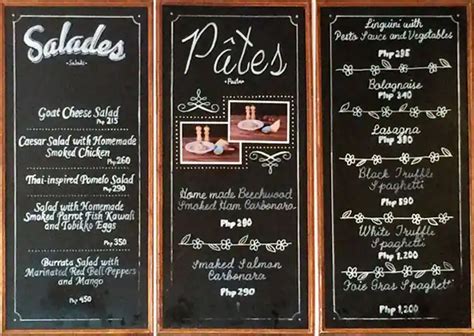 Salades
Salads
Goat Cheese Salad
Php 215
Caesar Salad with Homemade
Smoked Chicken
Php 260
Thai-inspired Pomelo Salad
Php 290
Salad with Homemade
Smoked Parrot Fish Kawali
and Tobikko Eggs
Php 350
Burrata Salad with
Marinated Red Bell Peppers
and Mango
Php 450
Pâtes
Pasta
Home made Beechwood
Smoked Ham Carbonara
Php 290
Smoked Salmon
Carbonara
Php 290
Linguini with
Pesto Sauce and Vegetables
Php 295
Bolognaise
Php 340
Lasagna
Php 380
Black Truffle
Spaghetti
Php 590
White Truffle
Spaghetti
Php 1,200
Foie Gras Spaghetti
Php 1,200